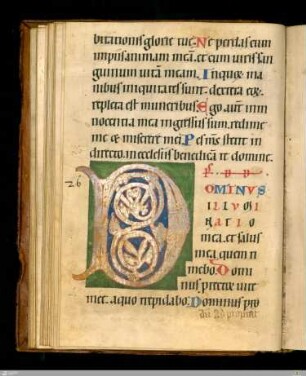 bitationis glorie tue. Ne perdas cum
impiis animam meã. et cum viris san
guinum uitã meam. In quor̃ ma
nibus iniquitates sunt. dextera eoꝝ
repleta est muneribus. Ego aut̃ in in
nocentia mea ingressus sum. redime
me & miserere mei. Pes m̃s stetit in
directo. in ecclesiis benedicã te domine.
26
DOMINVS
ILLVMI
NATIO
mea. et salus
mea. quem ti
mebo. Domi
nus protector uite
mee. a quo trepidabo. Dominus pro